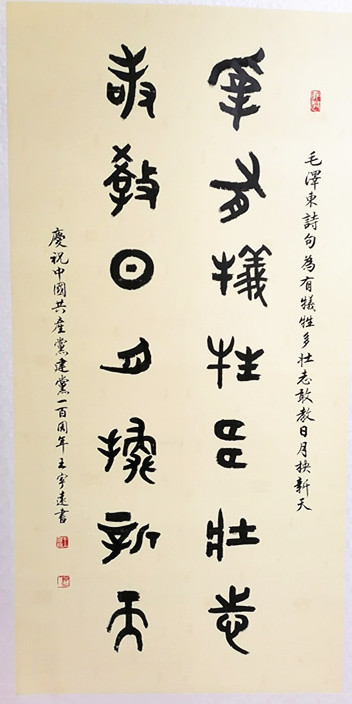 毛澤東詩句為有犧牲多壯志敢教日月換新天
為有犧牲多壯志
敢教日月換新天
慶祝中國共産黨建黨一百周年王宇遠書